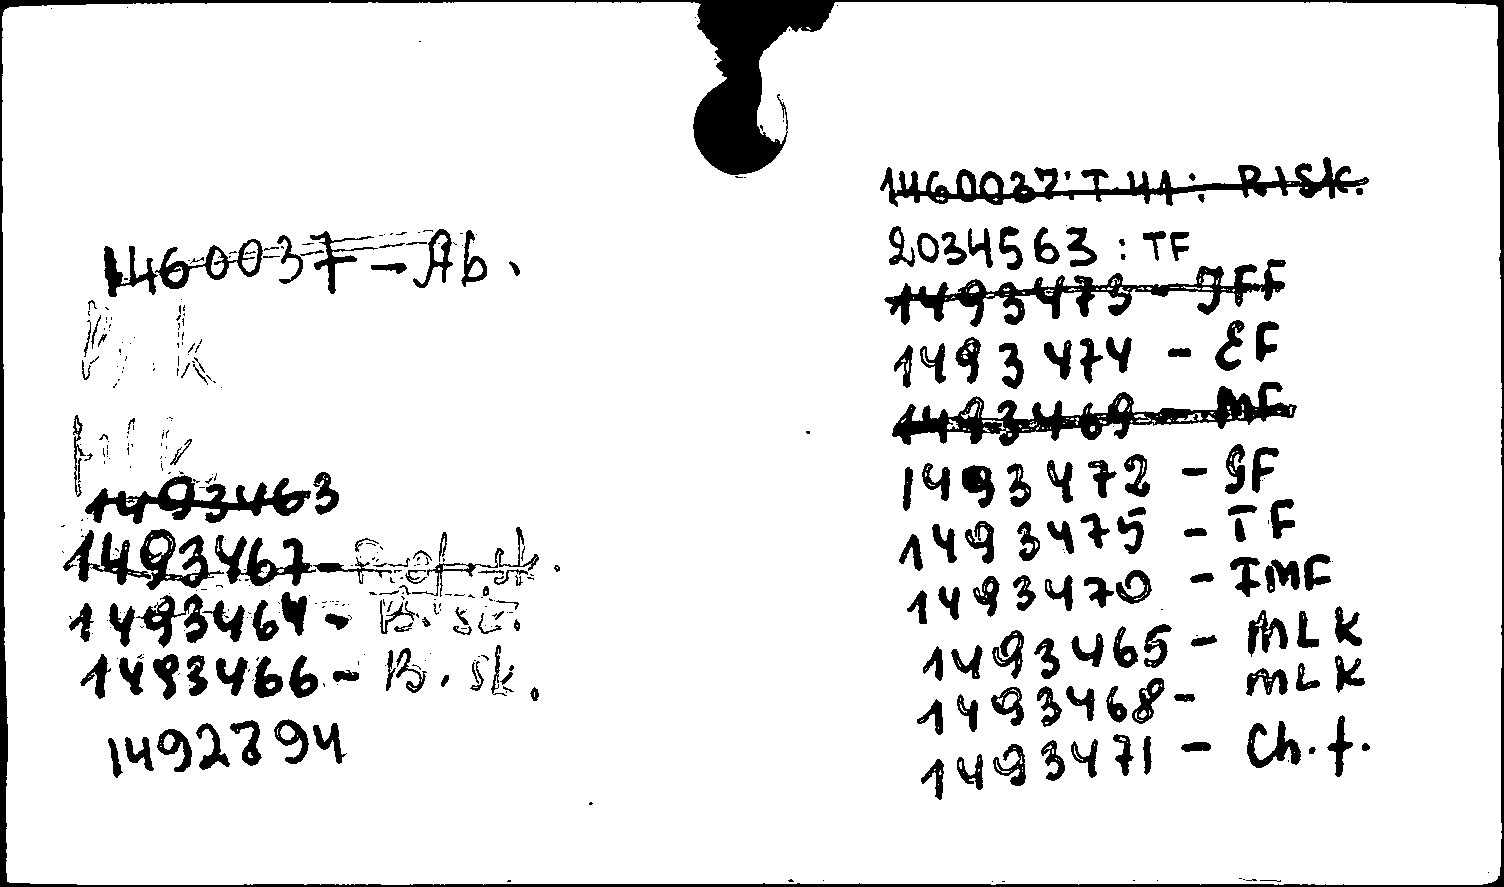 1460037 - Ab.
1493463
1493467 - Rof. sk.
1493464 - B. st.
1493466 - B. sk.
1492794
1460037: T. 41: RISK.
2034563 : TF
1493473 - JFF
1493474 - EF
1493469 - MF
1493472 - GF
1493475 - TF
1493470 - IMF
1493465 - MLK
1493468 - MLK
1493471 - Ch. f.